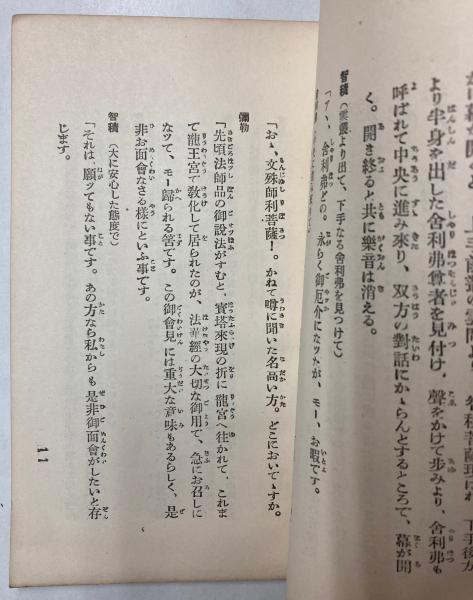 より半身を出した舍利弗尊者を見付け、聲をかけて歩みより、舍利弗も
呼ばれて中央に進み來り、双方の對話にかゝらんとするところで、幕が開
く。開き終ると共に樂音は消える。
智積（雲張より出て、下手なる舍利弗を見つけて）
「アヽ、舍利弗どの。永らく御厄介になツたが、モー、お暇です。
彌勒
「おゝ、文殊師利菩薩！。かねて噂に聞いた名高い方。どこにおいでですか。
「先頃法師品の御說法がすむと、寶塔來現の折に龍宮へ往かれて、これま
で龍王宮で敎化して居られたのが、法華經の大切な御用で、急にお召しに
なツて、モー歸られる筈です。この御會見には重大な意味もあるらしく、是
非お面會なさる樣にといふ事です。
智積（大に安心した態度で）
「それは、願ツてもない事です。あの方なら私からも是非御面會がしたいと存
じます。
一一